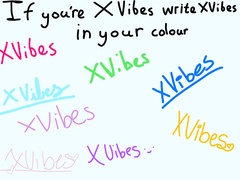 If you're X Vibes write XVibes
in your colour
XVibes
XVibes
XVibes
XVibes
XVibes
XVibes
XVibes
XVibes